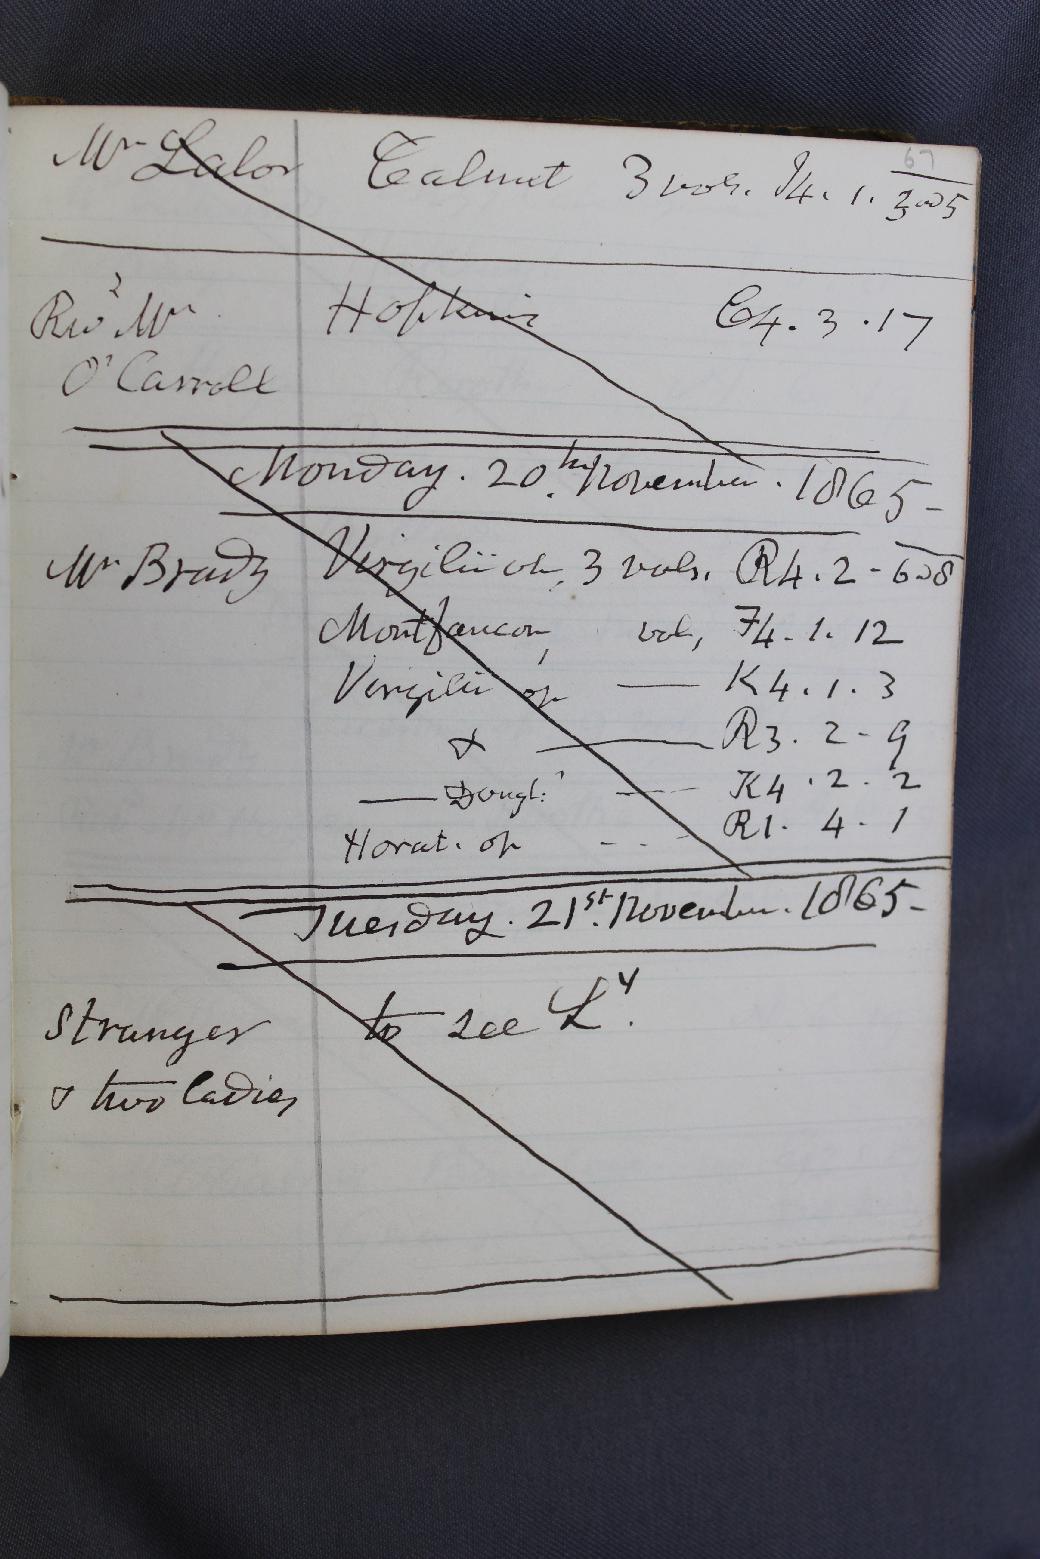 67
Mr Lalor Calmet 3 vols. I4. 1. 3 to 5
Revd Mr Hopkins C4. 3. 17
O'Carroll
Monday. 20th November. 1865-
Mr Brady Virgilii op, 3 vols. R4. 2 - 6 to 8
Montfaucon, vol, F4. 1. 12
Virgilii op — K4. 1. 3
& — R3. 2 - 9
— Dougl: K4. 2. 2
Horat. op R1. 4. 1
Tuesday. 21st. November. 1865-
Stranger to see Ly.
& two ladies